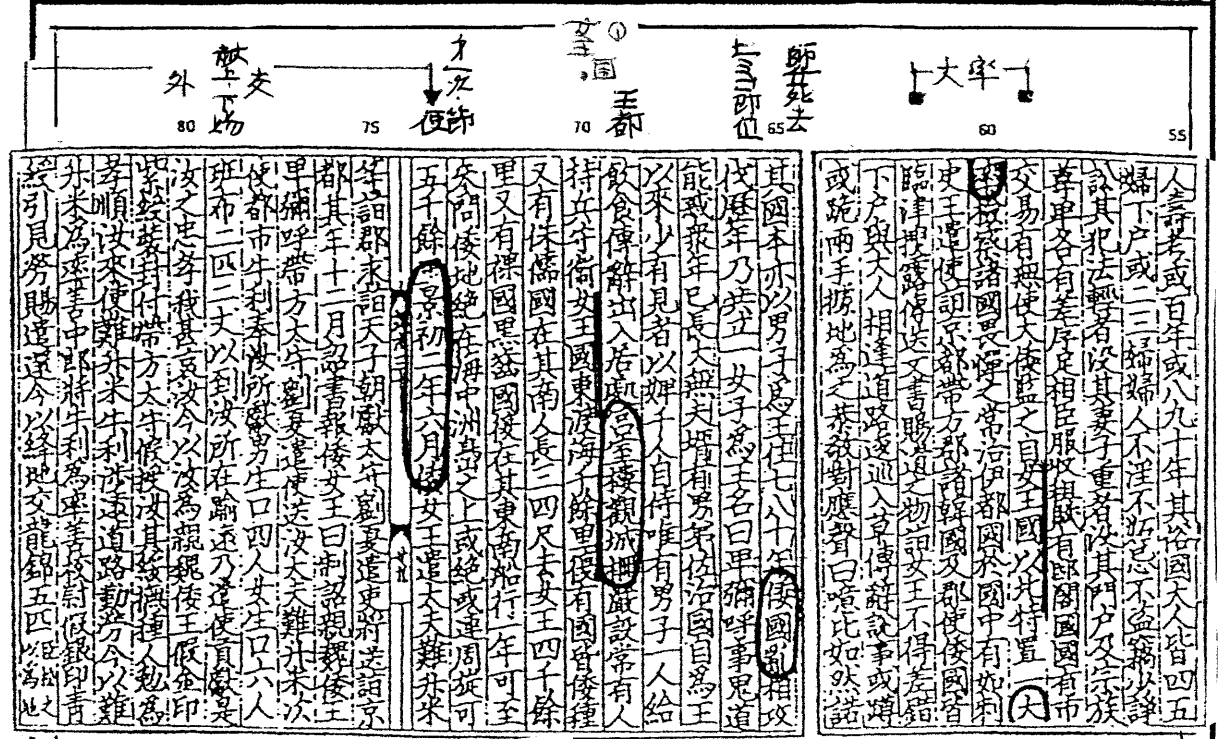 大率
師升死去
女王国
王都
才一次.節
使
外交
55
60
65
70
75
80
人壽考或百年或八九十年其俗國大人皆四五
婦下戶或二三婦婦人不淫不妒忌不盗竊少諍
訟其犯法輕者没其妻子重者没其門戶及宗族
尊卑各有差序足相臣服收租賦有邸閣國國有市
交易有無使大倭監之自女王國以北特置一大
率檢察諸國畏憚之常治伊都國於國中有如刺
史王遣使詣京都帶方郡諸韓國及郡使倭國皆
臨津搜露傳送文書賜遺之物詣女王不得差錯
下戶與大人相逢道路逡巡入草傳辭說事或蹲
或跪兩手據地爲之恭敬對應聲曰噫比如然諾
其國本亦以男子爲王住七八十年倭國亂相攻
伐歷年乃共立一女子爲王名曰卑彌呼事鬼道
能惑衆年已長大無夫壻有男弟佐治國自爲王
以來少有見者以婢千人自侍唯有男子一人給
飲食傳辭出入居處宮室樓觀城柵嚴設常有人
持兵守衛女王國東渡海千餘里復有國皆倭種
又有侏儒國在其南人長三四尺去女王四千餘
里又有裸國黑齒國復在其東南船行一年可至
參問倭地絶在海中洲㠀之上或絶或連周旋可
五千餘里景初二年六月倭女王遣大夫難升米
等詣郡求詣天子朝獻太守劉夏遣吏將送詣京
都其年十二月詔書報倭女王曰制詔親魏倭王
卑彌呼帶方太守劉夏遣使送汝大夫難升米次
使都市牛利奉汝所獻男生口四人女生口六人
班布二匹二丈以到汝所在踰遠乃遣使貢獻是
汝之忠孝我甚哀汝今以汝爲親魏倭王假金印
紫綬裝封付帶方太守假授汝其綏撫種人勉爲
孝順汝來使難升米牛利涉遠道路勤勞今以難
升米爲率善中郎將牛利爲率善校尉假銀印青
綬引見勞賜遣還今以絳地交龍錦五匹